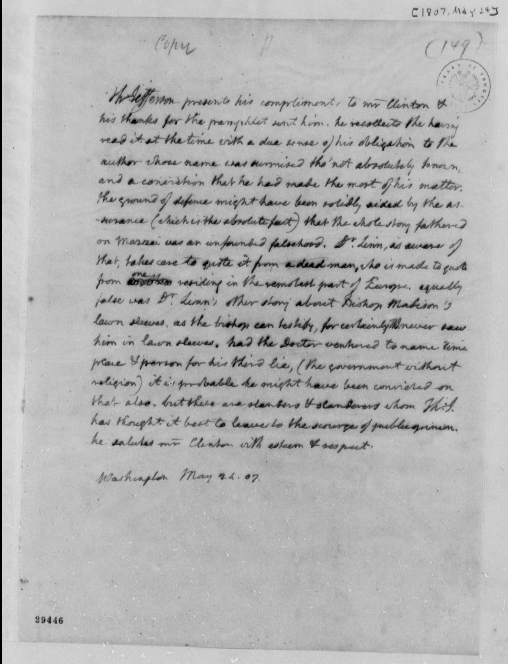 [1807, May 24]
Copy
(149)
Th: Jefferson presents his compliments to mr Clinton &
his thanks for the pamphlet sent him. he recollects the having
read it at the time with a due sense of his obligation to the
author whose name was surmised tho' not absolutely known,
and a conviction that he had made the most of his matter.
the ground of defence might have been solidly aided by the as-
-surance (which is the absolute fact) that the whole story fathered
on Mazzei was an unfounded falsehood. Dr. Linn, as aware of
that, takes care to quote it from a dead man, who is made to quote
from one residing in the remotest part of Europe. equally
false was Dr. Linn's other story about Bishop Madison's
lawn sleeves, as the bishop can testify, for certainly never saw
him in lawn sleeves. had the Doctor ventured to name time
place & person for his third lie, (the government without
religion) it is probable he might have been convicted on
that also. but these are slanders & slanderers whom Th: J.
has thought it best to leave to the scourge of public opinion.
he salutes mr Clinton with esteem & respect.
Washington May 24. 07.
29446